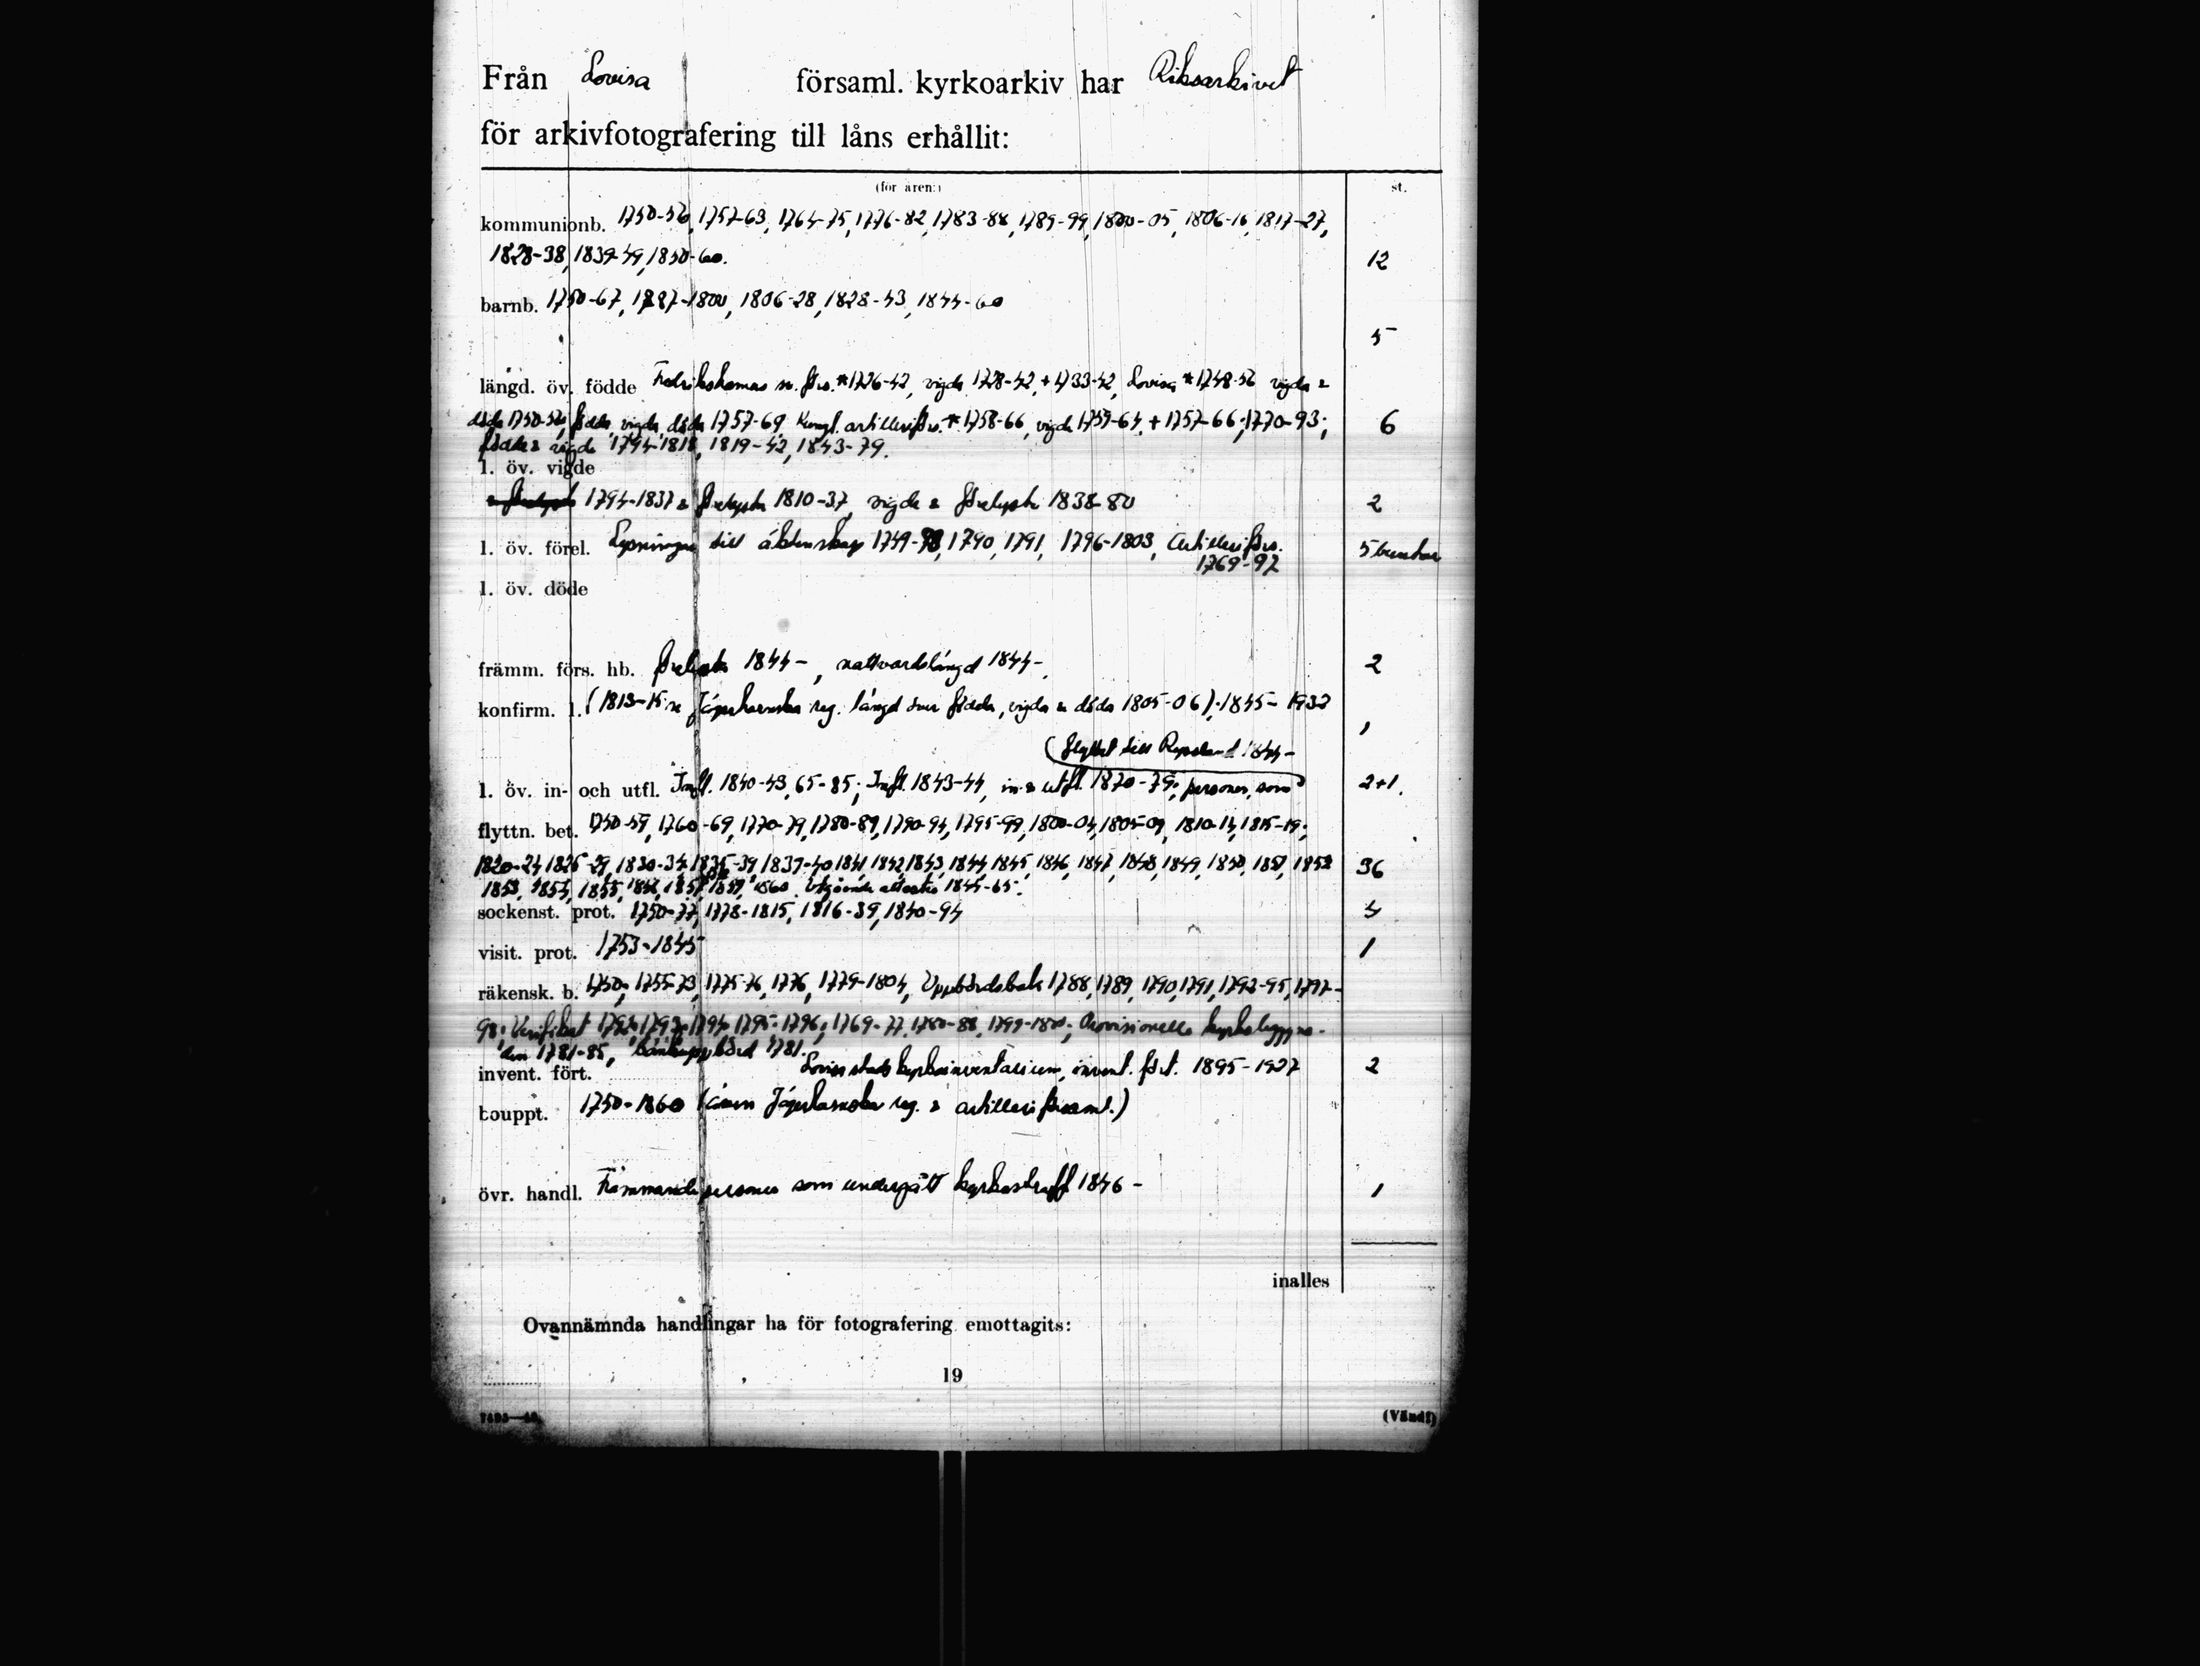 Från Lovisa församl. kyrkoarkiv har Riksarkivet
för arkivfotografering till låns erhållit:
(för åren:) st.
kommunionb. 1750-56, 1757-63, 1764-75, 1776-82, 1783-88, 1789-99, 1800-05, 1806-16, 1817-27,
1828-38, 1839-49, 1850-60. 12
barnb. 1750-67, 1787-1800, 1806-28, 1828-43, 1844-60
5
längd. öv. födde Fredrikshamns sv. förs. *1726-42, vigda 1728-42, +1733-42, Lovisa *1748-56 vigda &
döda 1750-56 födda vigda döda 1757-69 Kungl. artilleriförs. *1758-66, vigda 1759-64, +1757-66; 1770-93; 6
födda & vigda 1794-1818, 1819-42, 1843-79.
l. öv. vigde
1794-1837 & förelysta 1810-37, vigda & förelysta 1838-80 2
l. öv. förel. Lysningar till äktenskap 1749-98, 1790, 1791, 1796-1803, Artilleriförs. 5 buntar
1769-92
l. öv. döde
främm. förs. hb. förelysta 1844-, nattvardslängd 1844-. 2
konfirm. l. (1813-15 Jägerhornska reg. längd över födda, vigda & döda 1805-06). 1845-1932
1
(flyttat till Ryssland 1844-
l. öv. in- och utfl. Infl. 1840-43, 65-85; Infl. 1843-44, in- & utfl. 1870-79; personer, som 2+1.
flyttn. bet. 1750-59, 1760-69, 1770-79, 1780-89, 1790-94, 1795-99, 1800-04, 1805-09, 1810-14, 1815-19;
1820-24, 1825-29, 1830-34, 1835-39, 1839-40, 1841, 1842, 1843, 1844, 1845, 1846, 1847, 1848, 1849, 1850, 1851, 1852 36
1853, 1854, 1855, 1856, 1857, 1858, 1859, 1860. Utgående attester 1845-65.
sockenst. prot. 1750-77, 1778-1815, 1816-39, 1840-94 4
visit. prot. 1753-1845 1
räkensk. b. 1750, 1755-73, 1775-76, 1776, 1779-1804, Uppbördsbok 1788, 1789, 1790, 1791, 1792-95, 1797-
98; Verifikat 1792, 1793, 1794, 1795-1796; 1769-77, 1780-88, 1799-1800; Provisionella kyrkobyggna-
den 1781-85, bänkuppbörd 1781.
invent. fört. Lovisa stads kyrkoinventarium, invent. fört. 1895-1927 2
touppt. 1750-1860 (även Jägerhornska reg. & artilleriförsaml.)
övr. handl. Främmande personer som undergått kyrkostraff 1846- 1
inalles
Ovannämnda handlingar ha för fotografering emottagits:
19
(Vänd!)